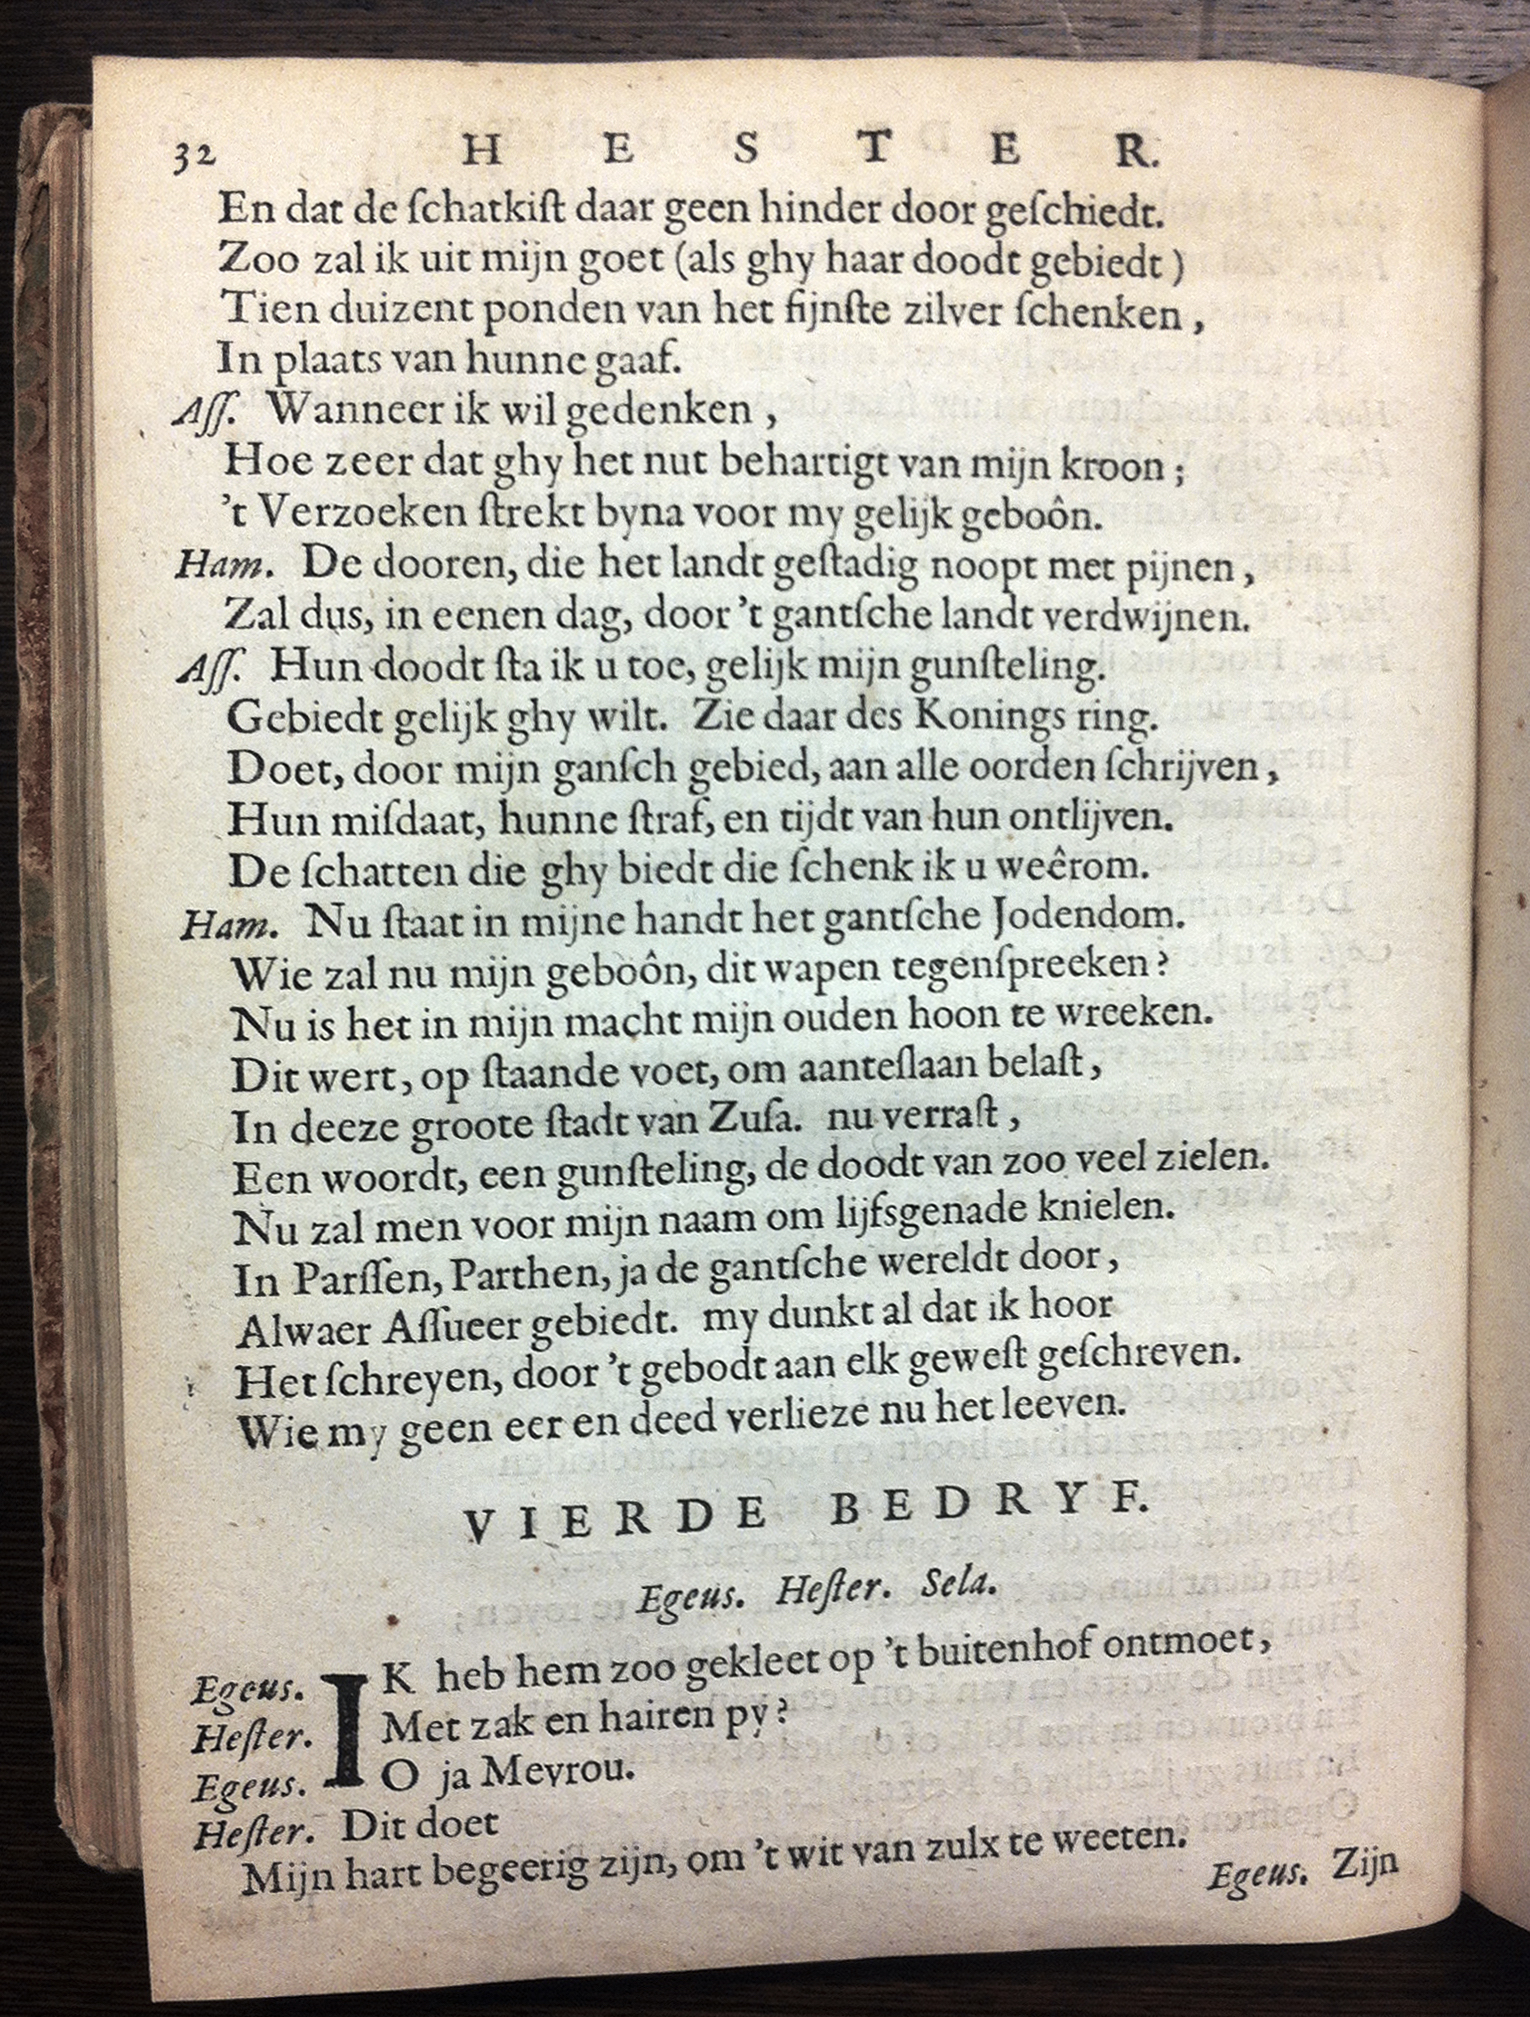 32 H E S T E R.
En dat de ſchatkiſt daar geen hinder door geſchiedt.
Zoo zal ik uit mijn goet (als ghy haar doodt gebiedt)
Tien duizent ponden van het fijnſte zilver ſchenken,
In plaats van hunne gaaf.
Aſſ. Wanneer ik wil gedenken,
Hoe zeer dat ghy het nut behartigt van mijn kroon;
't Verzoeken ſtrekt byna voor my gelijk geboôn.
Ham. De dooren, die het landt geſtadig noopt met pijnen,
Zal dus, in eenen dag, door 't gantſche landt verdwijnen.
Aſſ. Hun doodt ſta ik u toe, gelijk mijn gunſteling.
Gebiedt gelijk ghy wilt. Zie daar des Konings ring.
Doet, door mijn ganſch gebied, aan alle oorden ſchrijven,
Hun miſdaat, hunne ſtraf, en tijdt van hun ontlijven.
De ſchatten die ghy biedt die ſchenk ik u weêrom.
Ham. Nu ſtaat in mijne handt het gantſche Jodendom.
Wie zal nu mijn geboôn, dit wapen tegenſpreeken?
Nu is het in mijn macht mijn ouden hoon te wreeken.
Dit wert, op ſtaande voet, om aanteſlaan belaſt,
In deeze groote ſtadt van Zuſa. nu verraſt,
Een woordt, een gunſteling, de doodt van zoo veel zielen.
Nu zal men voor mijn naam om lijfsgenade knielen.
In Parſſen, Parthen, ja de gantſche wereldt door,
Alwaer Aſſueer gebiedt. my dunkt al dat ik hoor
Het ſchreyen, door 't gebodt aan elk geweſt geſchreven.
Wie my geen eer en deed verlieze nu het leeven.
VIERDE BEDRYF.
Egeus. Heſter. Sela.
Egeus. IK heb hem zoo gekleet op 't buitenhof ontmoet,
Heſter. Met zak en hairen py?
Egeus. O ja Mevrou.
Heſter. Dit doet
Mijn hart begeerig zijn, om 't wit van zulx te weeten.
Egeus. Zijn